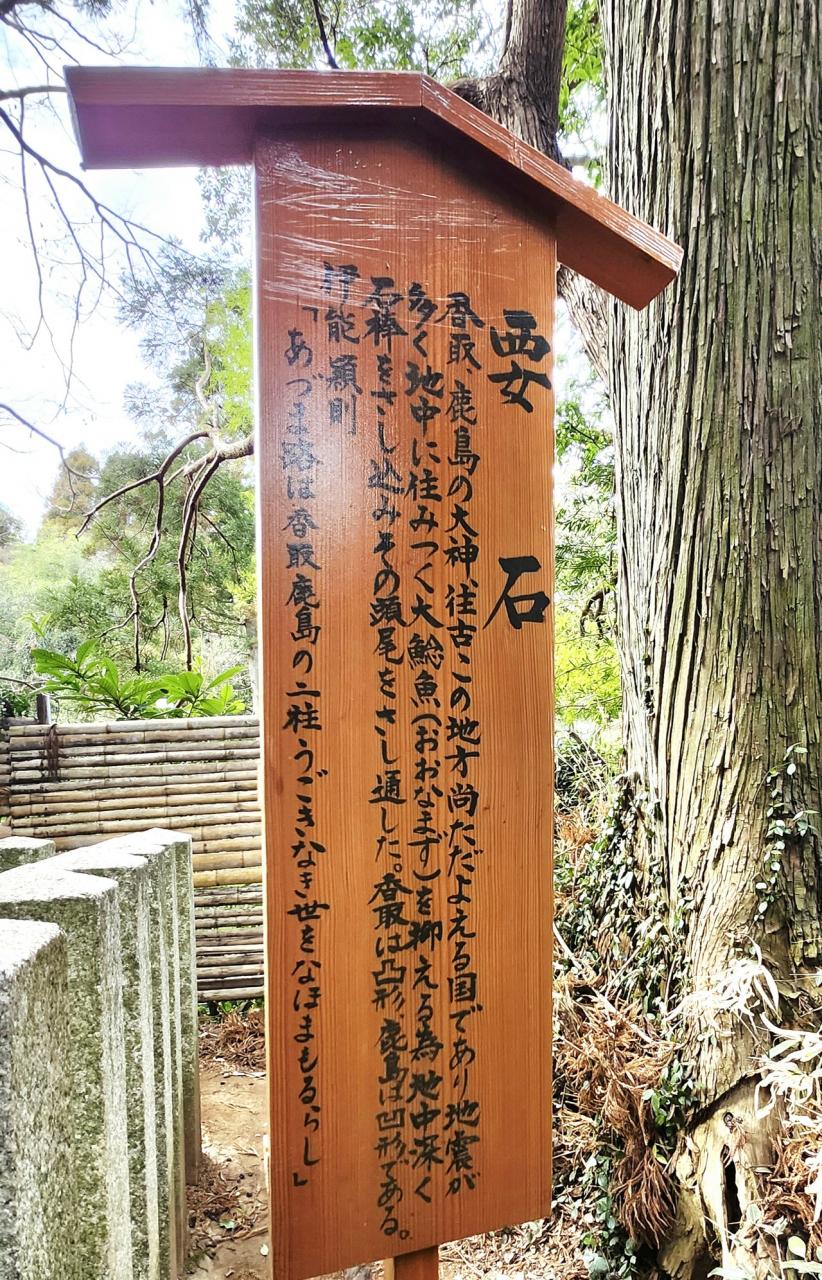 要石
香取、鹿島の大神、往古この地方尚ただよえる国であり地震が
多く地中に住みつく大鯰魚(おおなまず)を抑える為地中深く
石棒をさし込みその頭尾をさし通した。香取は凸形、鹿島は凹形である。
伊能 穎則
「あづま路は香取鹿島の二柱うごきなき世をなほまもるらし」